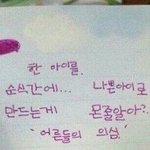 한 아이를.
순식간에... 나쁜아이로
만드는게 몬줄알아?.
'어른들의 의심.'